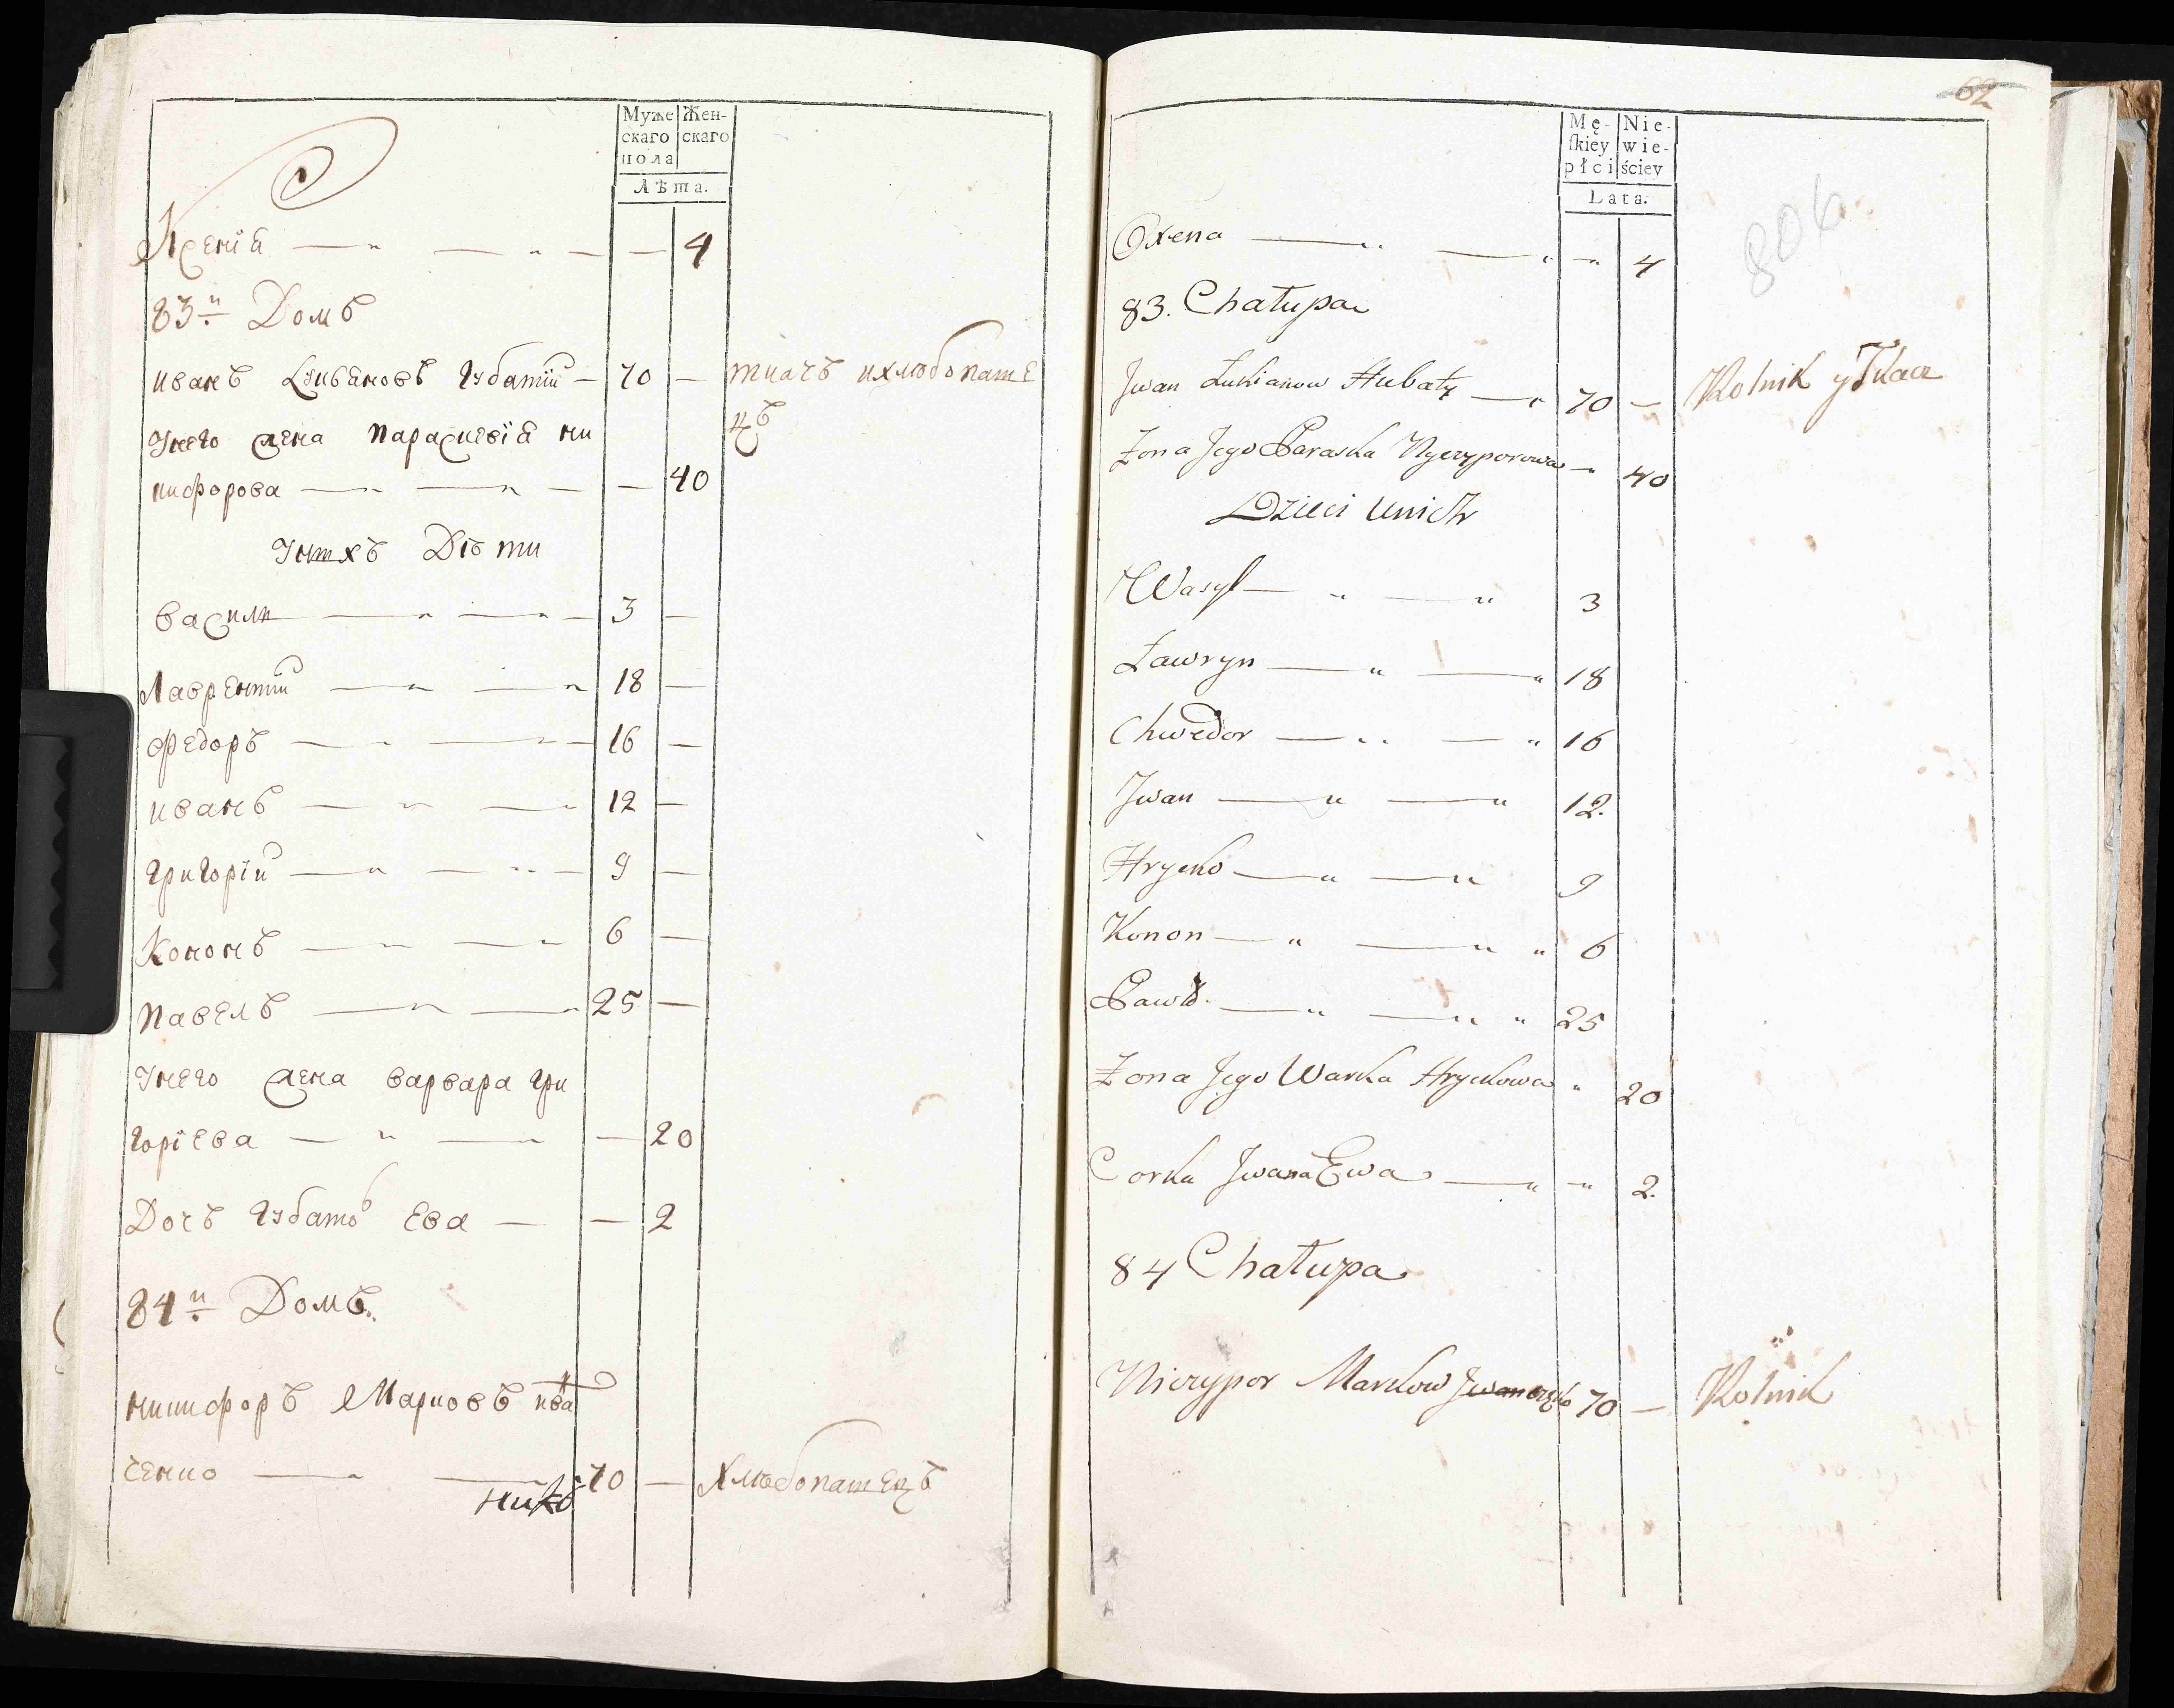 Муже
скаго
пола
Жен-
скаго
Лѣта.
Ксенїя 4
83й Домъ
иванъ Лукьяновъ Губатїй 70 ткачъ ихлѣбопаше
цъ
Унего жена параскевїя ни
кифорова 40
Унихъ Дѣти
василй 3
Лаврентїй 18
федоръ 16
иванъ 12
григорїй 9
Кононъ 6
павелъ 25
Унего жена варвара гри
горїева 20
Дочъ губатов Ева 2
84й Домъ
никифоръ Марковъ ива
ченко 70 Хлѣбопашецъ
Никѣ
62
Mę-
ſkiey
płci
Nie-
wie-
ściey
Lata.
806
Oxena 4
83. Chałupa
Jwan Łukianow Hubaty 70 Rolnik y Tkacz
Żona Jego Paraska Nyczyporowa 40
Dzieci unich
Wasyl 3
Ławryn 18
Chwedor 16
Jwan 12.
Hrycko 9
Konon 6
Pawło 25
Żona Jego Warka Hryckowa 20
Corka Jwana Ewa 2.
84 Chałupa
Niczypor Markow Jwanczęko 70 Rolnik